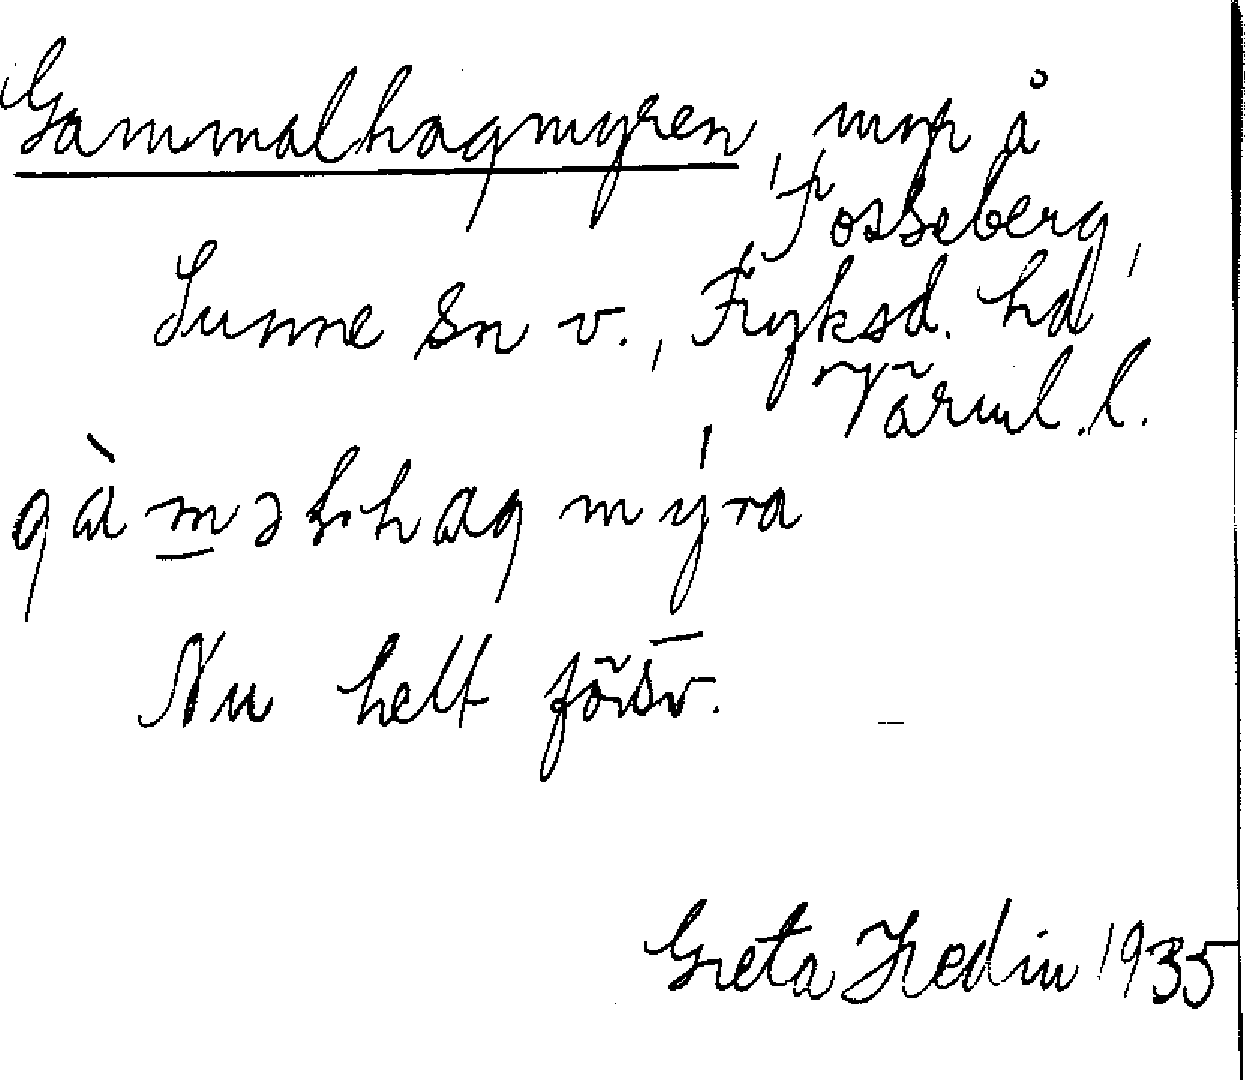 Gammalhagmyren, myr å
Fosseberg,
Sunne sn v., Fryksd. hd
Värml. l.
gàməlhagmýra
Nu helt försv.
Greta Hedin 1935